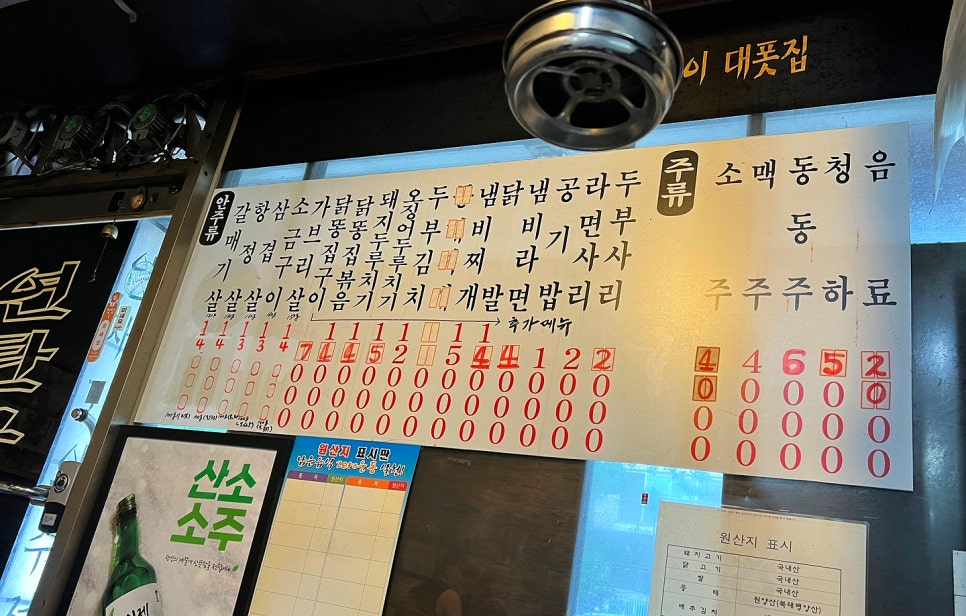 이 대폿집
안주류
갈매기살 14000
항정살 14000
삼겹살 13000
소금구이 13000
가브리살 14000
닭똥집구이 7000
닭똥집볶음 14000
돼지두루치기 14000
오징어두루치기 15000
두부김치 12000
냄비찌개 15000
닭발 14000
냄비라면 4000
공기밥 1000
라면사리 2000
두부사리 2000
추가메뉴
주류
소주 4000
맥주 4000
동동주 6000
청하 5000
음료 2000
연탄
산소
소주
원산지 표시판
남은음식 Zero운동 실천!
원산지 표시
돼지고기 국내산
닭고기 국내산
쌀 국내산
동태 원양산(북태평양산)
배추김치